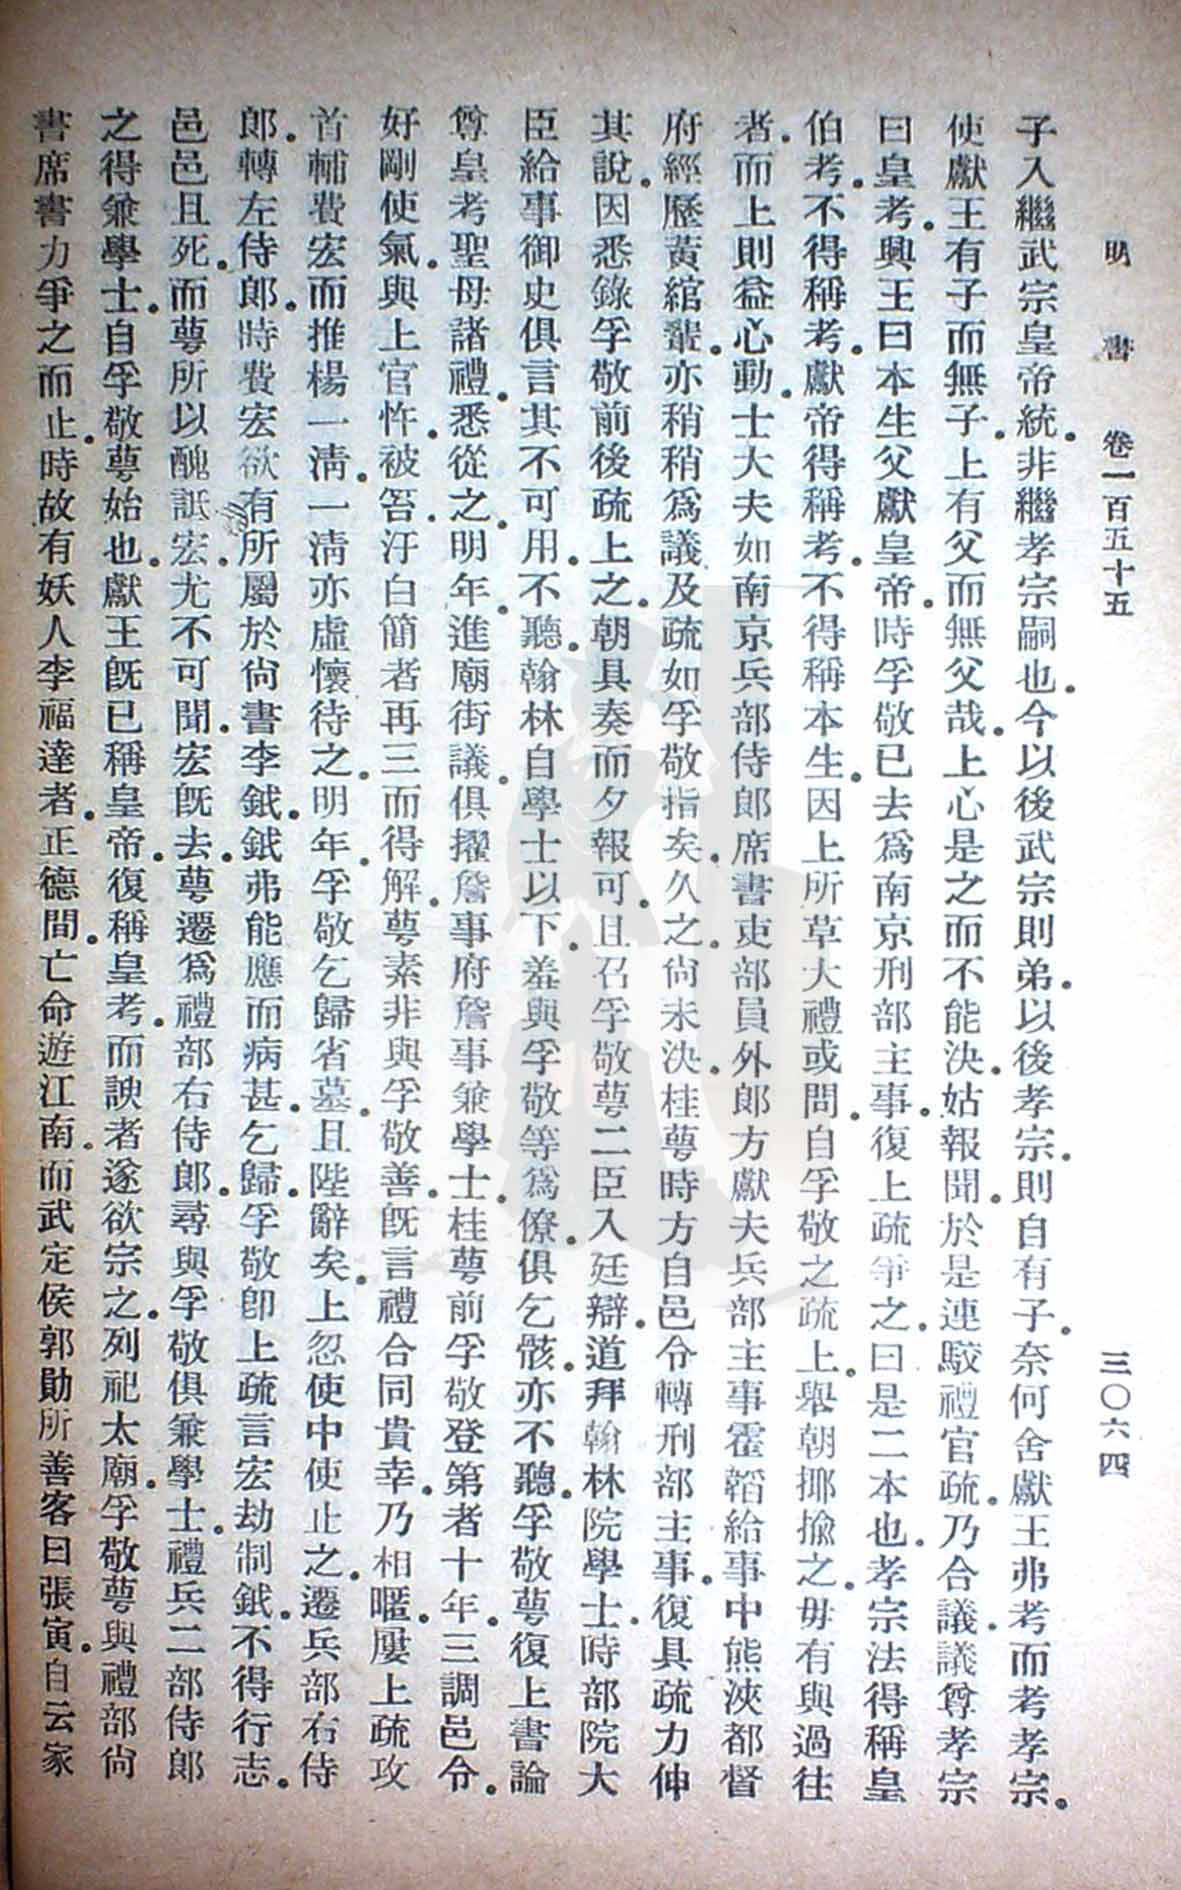 明書 卷一百五十五 三〇六四
子入繼武宗皇帝統。非繼孝宗嗣也。今以後武宗則弟。以後孝宗。則自有子。奈何舍獻王弗考而考孝宗。
使獻王有子而無子。上有父而無父哉。上心是之而不能決。姑報聞。於是連駁禮官疏。乃合議議尊孝宗
曰皇考。興王曰本生父獻皇帝。時孚敬已去爲南京刑部主事。復上疏爭之。曰是二本也。孝宗法得稱皇
伯考。不得稱考。獻帝得稱考。不得稱本生。因上所草大禮或問。自孚敬之疏上。舉朝揶揄之。毋有與過往
者。而上則益心動。士大夫如南京兵部侍郎席書吏部員外郎方獻夫兵部主事霍韜給事中熊浹都督
府經歷黃綰輩。亦稍稍爲議及疏如孚敬指矣。久之。尙未決。桂萼時方自邑令轉刑部主事。復具疏力伸
其說。因悉錄孚敬前後疏上之。朝具奏而夕報可。且召孚敬萼二臣入廷辯。道拜翰林院學士。時部院大
臣給事御史俱言其不可用。不聽。翰林自學士以下。羞與孚敬等爲僚。俱乞骸。亦不聽。孚敬萼復上書論
尊皇考聖母諸禮。悉從之。明年。進廟街議。俱擢詹事府詹事兼學士。桂萼前孚敬登第者十年。三調邑令。
好剛使氣。與上官忤。被笞。汙白簡者再三而得解。萼素非與孚敬善。旣言禮合同貴幸。乃相暱。屢上疏攻
首輔費宏而推楊一淸。一淸亦虛懷待之。明年。孚敬乞歸省墓。且陛辭矣。上忽使中使止之。遷兵部右侍
郎。轉左侍郎。時費宏欲有所屬於尙書李鉞。鉞弗能應而病甚。乞歸。孚敬卽上疏言宏劫制鉞。不得行志。
邑邑且死。而萼所以醜詆宏。尤不可聞。宏旣去。萼遷爲禮部右侍郎。尋與孚敬俱兼學士。禮兵二部侍郎
之得兼學士。自孚敬萼始也。獻王旣已稱皇帝。復稱皇考。而諛者遂欲宗之。列祀太廟。孚敬萼與禮部尙
書席書力爭之而止。時故有妖人李福達者。正德間。亡命遊江南。而武定侯郭勛所善客曰張寅。自云家